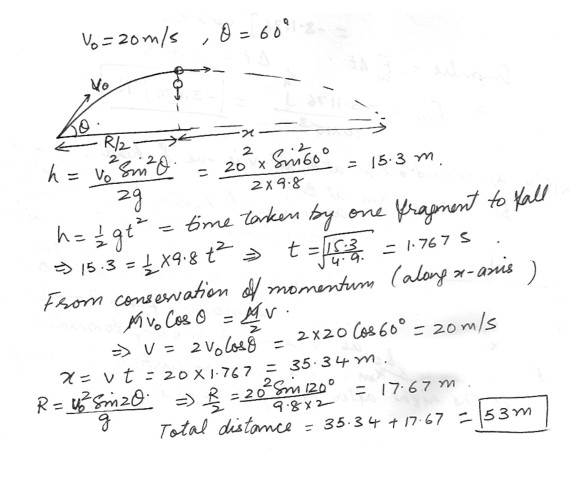 V₀ = 20 m/s , θ = 60°
V₀
θ
R/2 x
h = V₀² Sin²θ / 2g = 20² × Sin²60° / 2×9.8 = 15.3 m.
h = ½ gt² = time taken by one fragment to fall
⇒ 15.3 = ½ × 9.8 t² ⇒ t = √(15.3/4.9) = 1.767 s.
From conservation of momentum (along x-axis)
M V₀ Cos θ = M/2 V.
⇒ V = 2V₀ Cosθ = 2×20 Cos 60° = 20 m/s
x = vt = 20 × 1.767 = 35.34 m.
R = V₀² Sin 2θ / g ⇒ R/2 = 20² Sin 120° / 9.8×2 = 17.67 m.
Total distance = 35.34 + 17.67 = 53 m